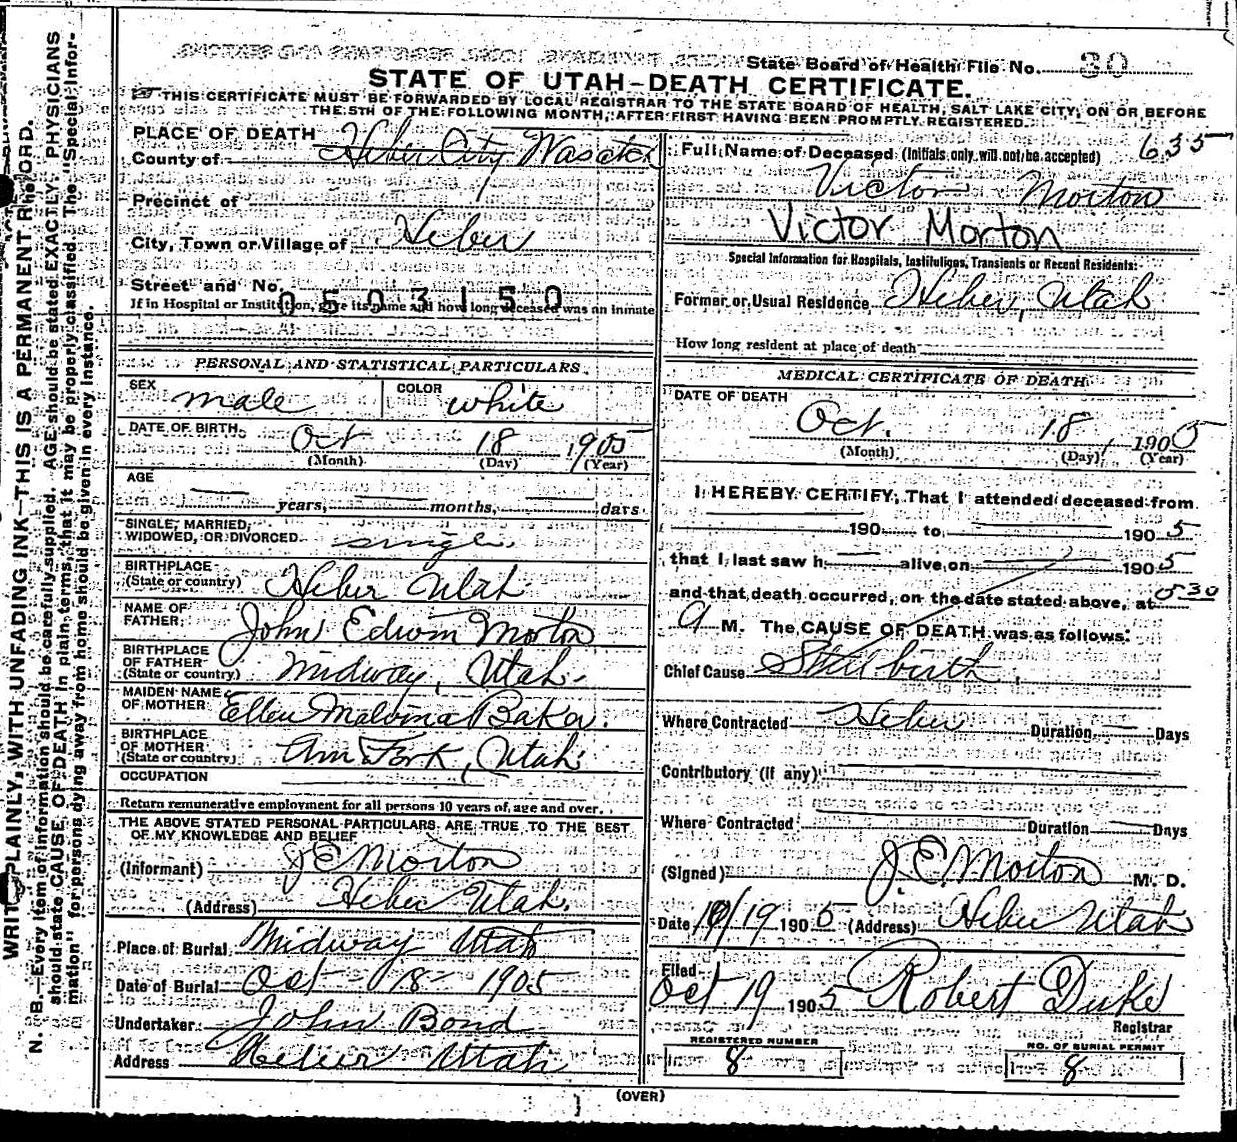 State Board of Health File No. 30
STATE OF UTAH-DEATH CERTIFICATE.
THIS CERTIFICATE MUST BE FORWARDED BY LOCAL REGISTRAR TO THE STATE BOARD OF HEALTH, SALT LAKE CITY, ON OR BEFORE
THE 5TH OF THE FOLLOWING MONTH, AFTER FIRST HAVING BEEN PROMPTLY REGISTERED.
WRITE PLAINLY, WITH UNFADING INK-THIS IS A PERMANENT RECORD.
N. B.-Every item of information should be carefully supplied. AGE should be stated EXACTLY. PHYSICIANS
should state CAUSE OF DEATH in plain terms, that it may be properly classified. The "Special Infor-
mation" for persons dying away from home should be given in every instance.
PLACE OF DEATH
County of Heber City Wasatch
Precinct of
City, Town or Village of Heber
Street and No.
0503150
If in Hospital or Institution, give its name and how long deceased was an inmate
PERSONAL AND STATISTICAL PARTICULARS
SEX male COLOR white
DATE OF BIRTH Oct 18 1905
(Month) (Day) (Year)
AGE
years, months, days
SINGLE, MARRIED,
WIDOWED, OR DIVORCED single
BIRTHPLACE
(State or country) Heber Utah
NAME OF
FATHER John Edwin Morton
BIRTHPLACE
OF FATHER
(State or country) Midway, Utah.
MAIDEN NAME
OF MOTHER Ellen Malvina Baker.
BIRTHPLACE
OF MOTHER
(State or country) Am Fork, Utah.
OCCUPATION
Return remunerative employment for all persons 10 years of age and over.
THE ABOVE STATED PERSONAL PARTICULARS ARE TRUE TO THE BEST
OF MY KNOWLEDGE AND BELIEF
(Informant) J E Morton
(Address) Heber Utah.
Place of Burial Midway Utah
Date of Burial Oct 18 1905
Undertaker John Bond
Address Heber Utah
635
Full Name of Deceased (Initials only will not be accepted)
Victor Morton
Victor Morton
Special Information for Hospitals, Institutions, Transients or Recent Residents:
Former or Usual Residence Heber, Utah
How long resident at place of death
MEDICAL CERTIFICATE OF DEATH
DATE OF DEATH
Oct. 18, 1905
(Month) (Day) (Year)
I HEREBY CERTIFY, That I attended deceased from
190 to 1905
that I last saw h alive on 1905
and that death occurred, on the date stated above, at 530
a M. The CAUSE OF DEATH was as follows:
Chief Cause Still birth.
Where Contracted Heber Duration Days
Contributory (if any)
Where Contracted Duration Days
(Signed) J. E. Morton M. D.
Date 10/19 1905 (Address) Heber Utah
Filed
Oct 19 1905 Robert Duke
Registrar
REGISTERED NUMBER
8
NO. OF BURIAL PERMIT
8
(OVER)